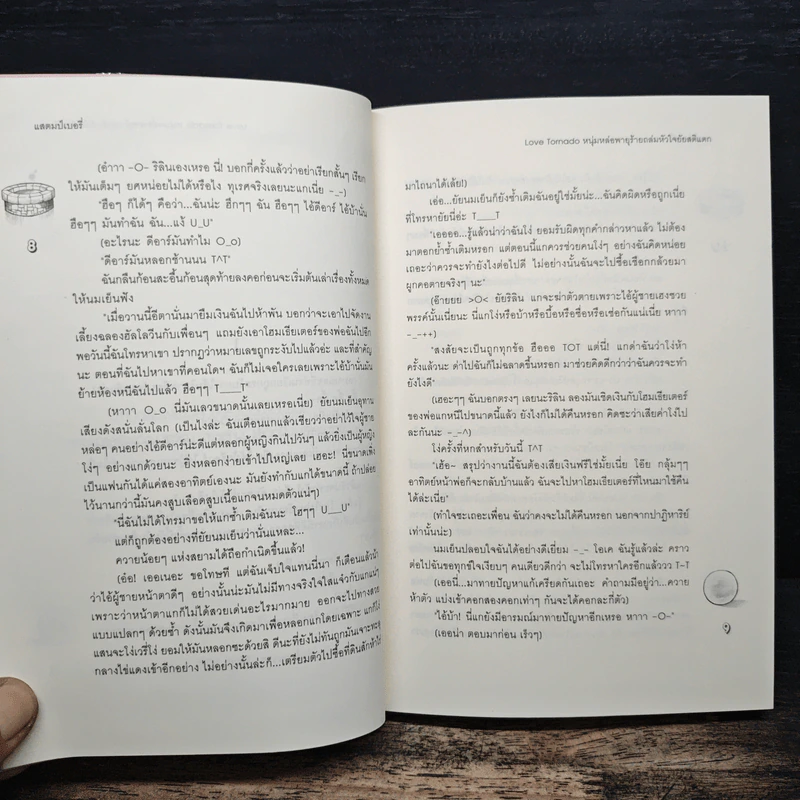 แสตมป์เบอรี่
(อ๋าาา -O- ริลินเองเหรอ นี่! บอกกี่ครั้งแล้วว่าอย่าเรียกสั้นๆ เรียก
ให้มันเต็มๆ ยศหน่อยไม่ได้หรือไง ทุเรศจริงเลยนะแกเนี่ย -_-)
"ฮือๆ ก็ได้ๆ คือว่า...ฉันน่ะ ฮึกๆๆ ฉัน ฮือๆๆ ไอ้ดีอาร์ ไอ้บ้านั่น
ฮือๆๆ มันทำฉัน ฉัน...แง้ U_U"
(อะไรนะ ดีอาร์มันทำไม O_o)
"ดีอาร์มันหลอกช้านนน T^T"
ฉันกลืนก้อนสะอื้นก้อนสุดท้ายลงคอก่อนจะเริ่มต้นเล่าเรื่องทั้งหมด
ให้นมเย็นฟัง
"เมื่อวานนี้อีตานั่นมายืมเงินฉันไปห้าพัน บอกว่าจะเอาไปจัดงาน
เลี้ยงฉลองฮัลโลวีนกับเพื่อนๆ แถมยังเอาโฮมเธียเตอร์ของพ่อฉันไปอีก
พอวันนี้ฉันโทรหาเขา ปรากฏว่าหมายเลขถูกระงับไปแล้วอ่ะ และที่สำคัญ
นะ ตอนที่ฉันไปหาเขาที่คอนโดฯ ฉันก็ไม่เจอใครเลยเพราะไอ้บ้านั่นมัน
ย้ายห้องหนีฉันไปแล้ว ฮือๆๆ T___T"
(หาาา O_o นี่มันเลวขนาดนั้นเลยเหรอเนี่ย) ยัยนมเย็นอุทาน
เสียงดังสนั่นลั่นโลก (เป็นไงล่ะ ฉันเตือนแกแล้วเชียวว่าอย่าไว้ใจผู้ชาย
หล่อๆ คนอย่างไอ้ดีอาร์น่ะดีแต่หลอกผู้หญิงกินไปวันๆ แล้วยิ่งเป็นผู้หญิง
โง่ๆ อย่างแกด้วยนะ ยิ่งหลอกง่ายเข้าไปใหญ่เลย เฮอะ! นี่ขนาดเพิ่ง
เป็นแฟนกันได้แค่สองอาทิตย์เองนะ มันยังทำกับแกได้ขนาดนี้ ถ้าปล่อย
ไว้นานกว่านี้มันคงสูบเลือดสูบเนื้อแกจนหมดตัวแน่ๆ)
"นี่ฉันไม่ได้โทรมาขอให้แกซ้ำเติมฉันนะ โฮๆๆ U___U"
แต่ก็ถูกต้องอย่างที่ยัยนมเย็นว่านั่นแหละ...
ควายน้อยๆ แห่งสยามได้ถือกำเนิดขึ้นแล้ว!
(อ๋อ! เออเนอะ ขอโทษที แต่ฉันเจ็บใจแทนนี่นา ก็เตือนแล้วนี่
ว่าไอ้ผู้ชายหน้าตาดีๆ อย่างนั้นน่ะมันไม่มีทางจริงใจใสแจ๋วกับแกแน่ๆ
เพราะว่าหน้าตาแกก็ไม่ได้สวยเด่นอะไรมากมาย ออกจะไปทางสวย
แบบแปลกๆ ด้วยซ้ำ ดังนั้นมันจึงเกิดมาเพื่อหลอกแกโดยเฉพาะ แกก็โง่
แสนจะโง่เวรี่โง่ ยอมให้มันหลอกซะด้วยสิ ดีนะที่ยังไม่ทันถูกมันเจาะทะลุ
กลางไข่แดงเข้าอีกอย่าง ไม่อย่างนั้นล่ะก็...เตรียมตัวไปซื้อที่ดินสักห้าไร่
8
Love Tornado หนุ่มหล่อพายุร้ายถล่มหัวใจยัยสติแตก
มาไถนาได้เลย!)
เอ่อ...ยัยนมเย็นก็ยังซ้ำเติมฉันอยู่ใช่มั้ยน่ะ...ฉันคิดผิดหรือถูกเนี่ย
ที่โทรหายัยนี่อ่ะ T___T
"เออออ...รู้แล้วน่าว่าฉันโง่ ยอมรับผิดทุกคำกล่าวหาแล้ว ไม่ต้อง
มาตอกย้ำซ้ำเติมหรอก แต่ตอนนี้แกควรช่วยคนโง่ๆ อย่างฉันคิดหน่อย
เถอะว่าควรจะทำยังไงต่อไปดี ไม่อย่างนั้นฉันจะไปซื้อเชือกกล้วยมา
ผูกคอตายจริงๆ นะ"
(อ๊ายยย >O< ยัยริลิน แกจะฆ่าตัวตายเพราะไอ้ผู้ชายเฮงซวย
พรรค์นั้นเนี่ยนะ นี่แกโง่หรือบ้าหรือบื้อหรือซื่อหรือเซ่อกันแน่เนี่ย หาาา
-_-++)
"สงสัยจะเป็นถูกทุกข้อ ฮือออ TOT แต่นี่! แกด่าฉันว่าโง่ห้า
ครั้งแล้วนะ ด่าไปฉันก็ไม่ฉลาดขึ้นหรอก มาช่วยคิดดีกว่าว่าฉันควรจะทำ
ยังไงดี"
(เฮอะๆๆ ฉันบอกตรงๆ เลยนะริลิน ลองมันเชิดเงินกับโฮมเธียเตอร์
ของพ่อแกหนีไปขนาดนี้แล้ว ยังไงก็ไม่ได้คืนหรอก คิดซะว่าเสียค่าโง่ไป
ละกันนะ -_-^)
โง่ครั้งที่หกสำหรับวันนี้ T^T
"เฮ้อ~ สรุปว่างานนี้ฉันต้องเสียเงินฟรีใช่มั้ยเนี่ย โอ๊ย กลุ้มๆๆ
อาทิตย์หน้าพ่อก็จะกลับบ้านแล้ว ฉันจะไปหาโฮมเธียเตอร์ที่ไหนมาใช้คืน
ได้ล่ะเนี่ย"
(ทำใจซะเถอะเพื่อน ฉันว่าคงจะไม่ได้คืนหรอก นอกจากปาฏิหาริย์
เท่านั้นน่ะ)
นมเย็นปลอบใจฉันได้อย่างดีเยี่ยม -_- โอเค ฉันรู้แล้วล่ะ คราว
ต่อไปฉันขอทุกข์ใจเงียบๆ คนเดียวดีกว่า จะไม่โทรหาใครอีกแล้ววว T-T
(เออนี่...มาทายปัญหาแก้เครียดกันเถอะ คำถามมีอยู่ว่า...ควาย
ห้าตัว แบ่งเข้าคอกสองคอกเท่าๆ กันจะได้คอกละกี่ตัว)
"ไอ้บ้า! นี่แกยังมีอารมณ์มาทายปัญหาอีกเหรอ หาาา -O-"
(เออน่า ตอบมาก่อน เร็วๆ)
9